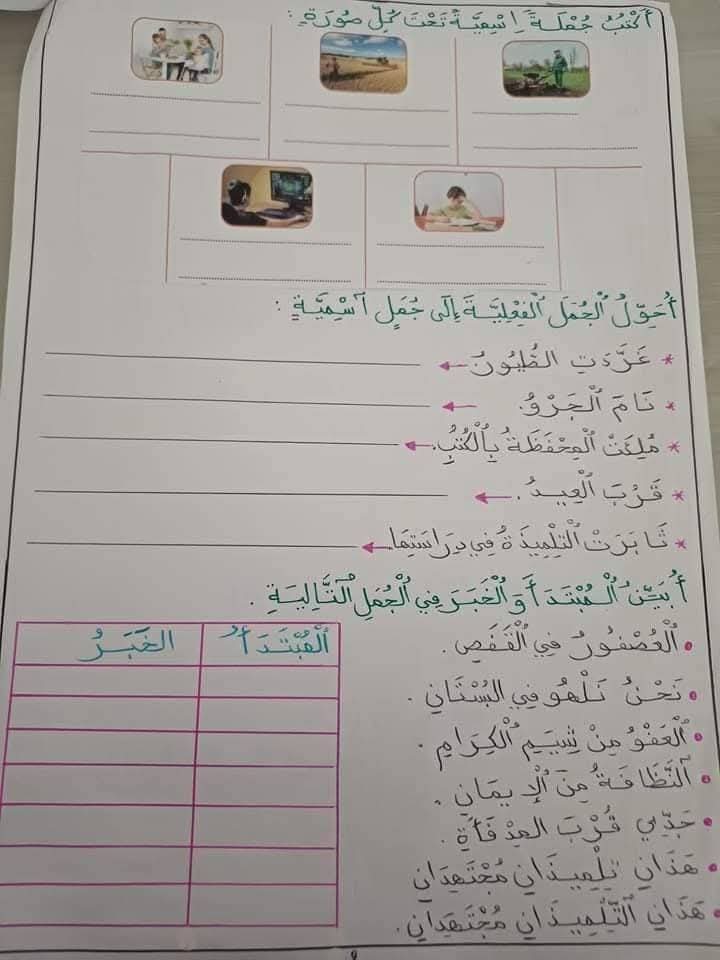 أَكْتُبُ جُمْلَةً اِسْمِيَّةً تَحْتَ كُلِّ صُورَةٍ:
أُحَوِّلُ اُلْجُمَلَ اُلْفِعْلِيَّةَ إِلَى جُمَلٍ اُسْمِيَّةٍ :
* غَرَّدَتِ الطُّيُورُ
* نَامَ اُلْجَرْوُ.
* مُلِئَتْ اُلْمِحْفَظَةُ بِاُلْكُتُبِ.
* قَرُبَ اُلْعِيدُ.
* ثَابَرَتْ اُلتِّلْمِيذَةُ فِي دِرَاسَتِهَا.
أُبَيِّنُ اُلْمُبْتَدَأَ وَ اُلْخَبَرَ فِي اُلْجُمَلِ اُلتَّالِيَةِ .
اُلْمُبْتَدَأُ الخَبَرُ
• اُلْعُصْفُورُ فِي اُلْقَفَصِ.
• نَحْنُ نَلْهُو فِي البُسْتَانِ.
• اُلْعَفْوُ مِنْ شِيَمِ اُلْكِرَامِ.
• اُلنَّظَافَةُ مِنَ اُلْإِيمَانِ.
• جَدِّي قُرْبَ المِدْفَأَةِ.
• هَذَانِ تِلْمِيذَانِ مُجْتَهِدَانِ
• هَذَانِ اُلتِّلْمِيذَانِ مُجْتَهِدَانِ.
9